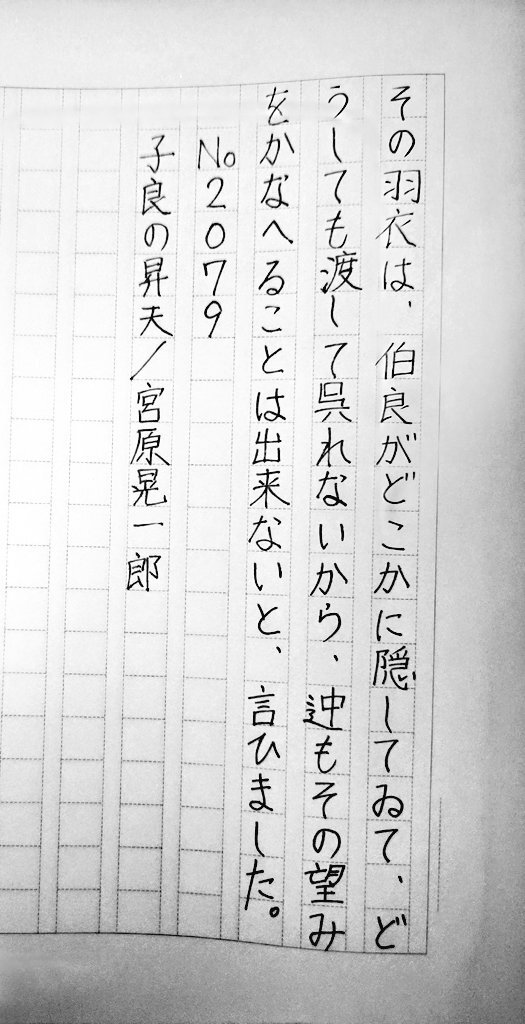 その羽衣は、伯良がどこかに隠してゐて、ど
うしても渡して呉れないから、迚もその望み
をかなへることは出来ないと、言ひました。
No2079
子良の昇夫/宮原晃一郎